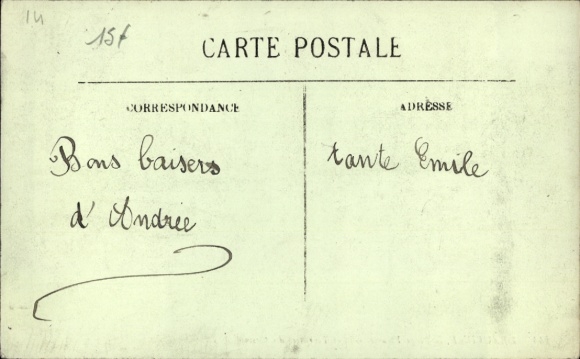 14
15f
CARTE POSTALE
CORRESPONDANCE
ADRÈSSE
Bons baisers
d'Andrée
tante Emile